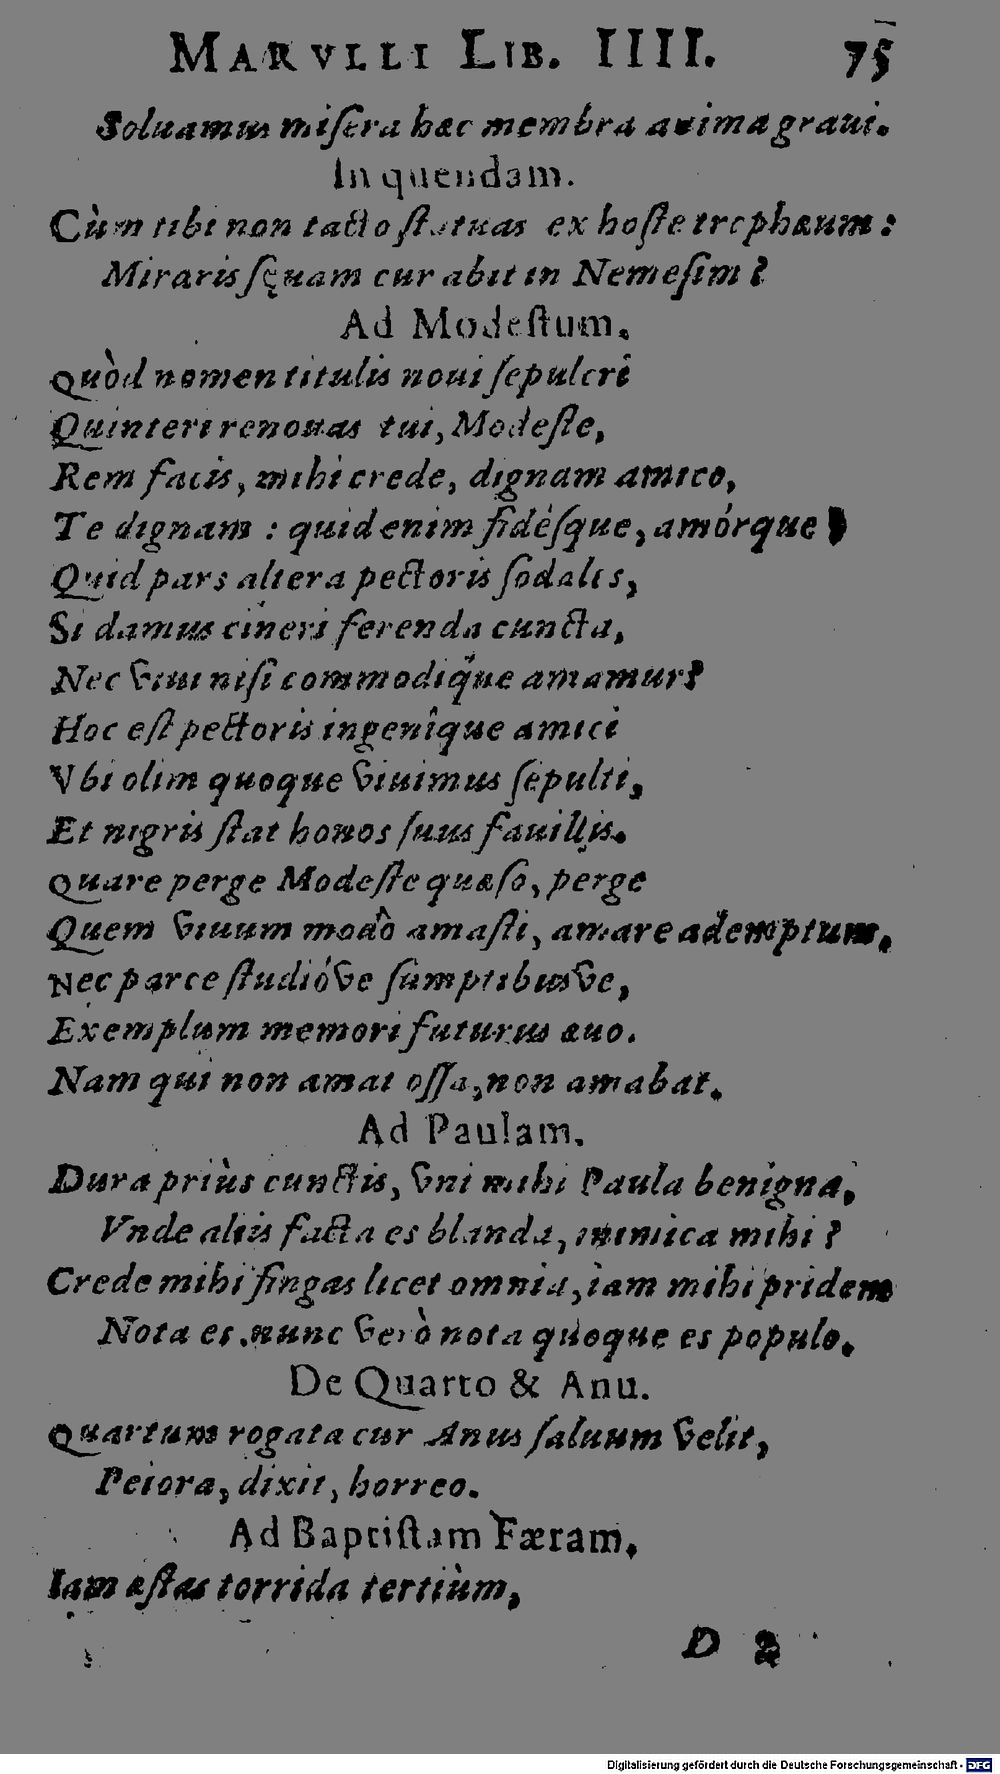 MARVLLI LIB. IIII. 75
Soluamus miſera hæc membra anima graui.
In quendam.
Cùm tibi non tacto ſtatuas ex hoſte trophæum:
Miraris ſęuam cur abit in Nemeſim?
Ad Modeſtum.
Quòd nomen titulis noui ſepulcri
Quinteri renouas tui, Modeſte,
Rem facis, mihi crede, dignam amico,
Te dignam: quid enim fidéſque, amórque
Quid pars altera pectoris ſodalis,
Si damus cineri ferenda cuncta,
Nec viui niſi commodíque amamur?
Hoc eſt pectoris ingenîque amici
Vbi olim quoque viuimus ſepulti,
Et nigris ſtat honos ſuus fauillis.
Quare perge Modeſte quæſo, perge
Quem viuum modò amaſti, amare ademptum,
Nec parce ſtudióve ſumptibusve,
Exemplum memori futurus æuo.
Nam qui non amat oſſa, non amabat.
Ad Paulam.
Dura priùs cunctis, vni mihi Paula benigna,
Vnde aliis facta es blanda, inimica mihi?
Crede mihi fingas licet omnia, iam mihi pridem
Nota es, nunc verò nota quoque es populo.
De Quarto & Anu.
Quartum rogata cur Anus ſaluum velit,
Peiora, dixit, horreo.
Ad Baptiſtam Færam.
Iam æſtas torrida tertiùm,
D 2
Digitalisierung gefördert durch die Deutsche Forschungsgemeinschaft - DFG